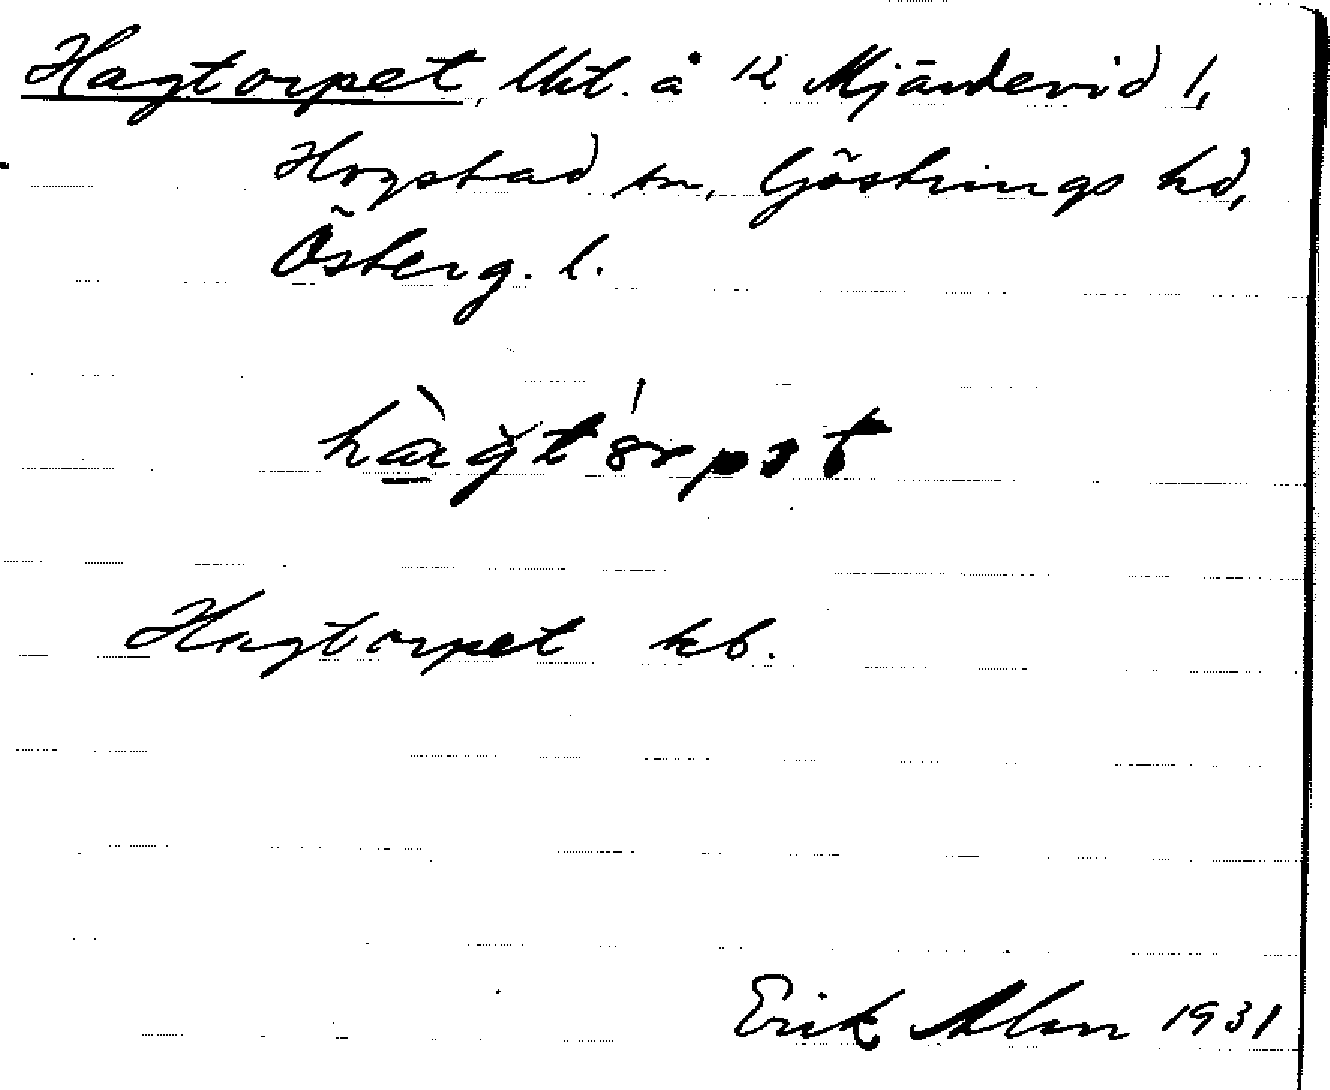 Hagtorpet, lht. å 1/2 Mjärdevid 1,
Hogstad sn, Göstrings hd,
Österg. l.
hàgtórpət
Hagtorpet kb.
Erik Ahlm 1931